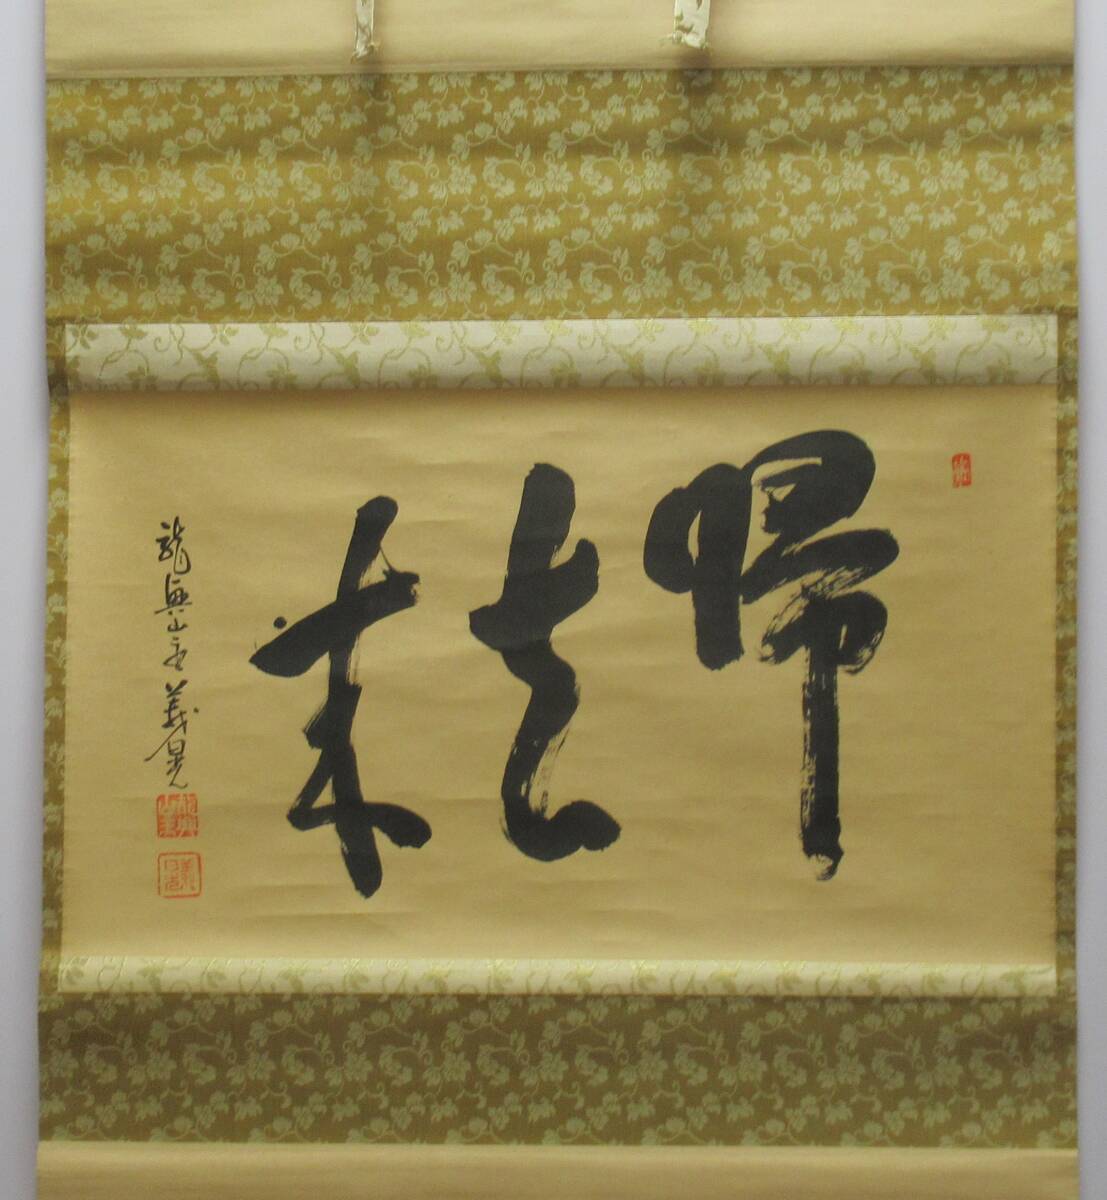 帰去来
龍興山主義晃